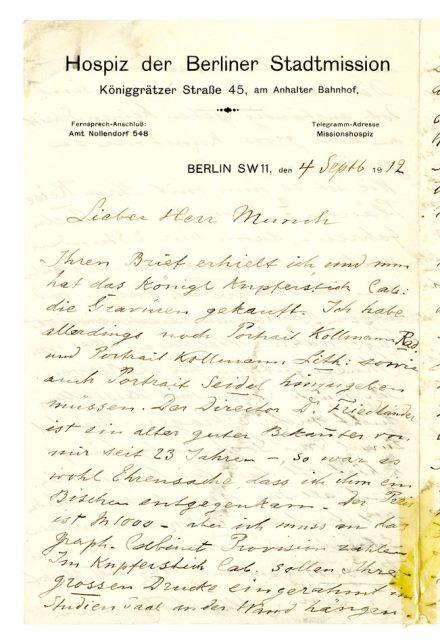 Hospiz der Berliner Stadtmission
Königgrätzer Straße 45, am Anhalter Bahnhof.
Fernsprech-Anschluß:
Amt Nollendorf 548
Telegramm-Adresse
Missionshospiz
BERLIN SW11, den 4 Septb 1912
Lieber Herr Munch
Ihren Brief erhielt ich und nun
hat das Königl Kupferstich Cab:
die Gravüren gekauft. Ich habe
allerdings noch Portrait Kollmann Rad.
und Portrait Kollmann Lith: sowie
auch Portrait Seidel hinzugeben
müssen. Der Director D. Friedländer
ist ein alter guter Bekannter von
mir seit 23 Jahren –, so war es
wohl Ehrensache dass ich ihm ein
Bischen entgegenkam. Der Preis
ist M 1000 – aber ich muss an das
graph. Cabinet Provision zahlen
Im Kupferstich Cab. sollen Ihre
grossen Drucke eingerahmt im
Studiensaal an der Wand hängen